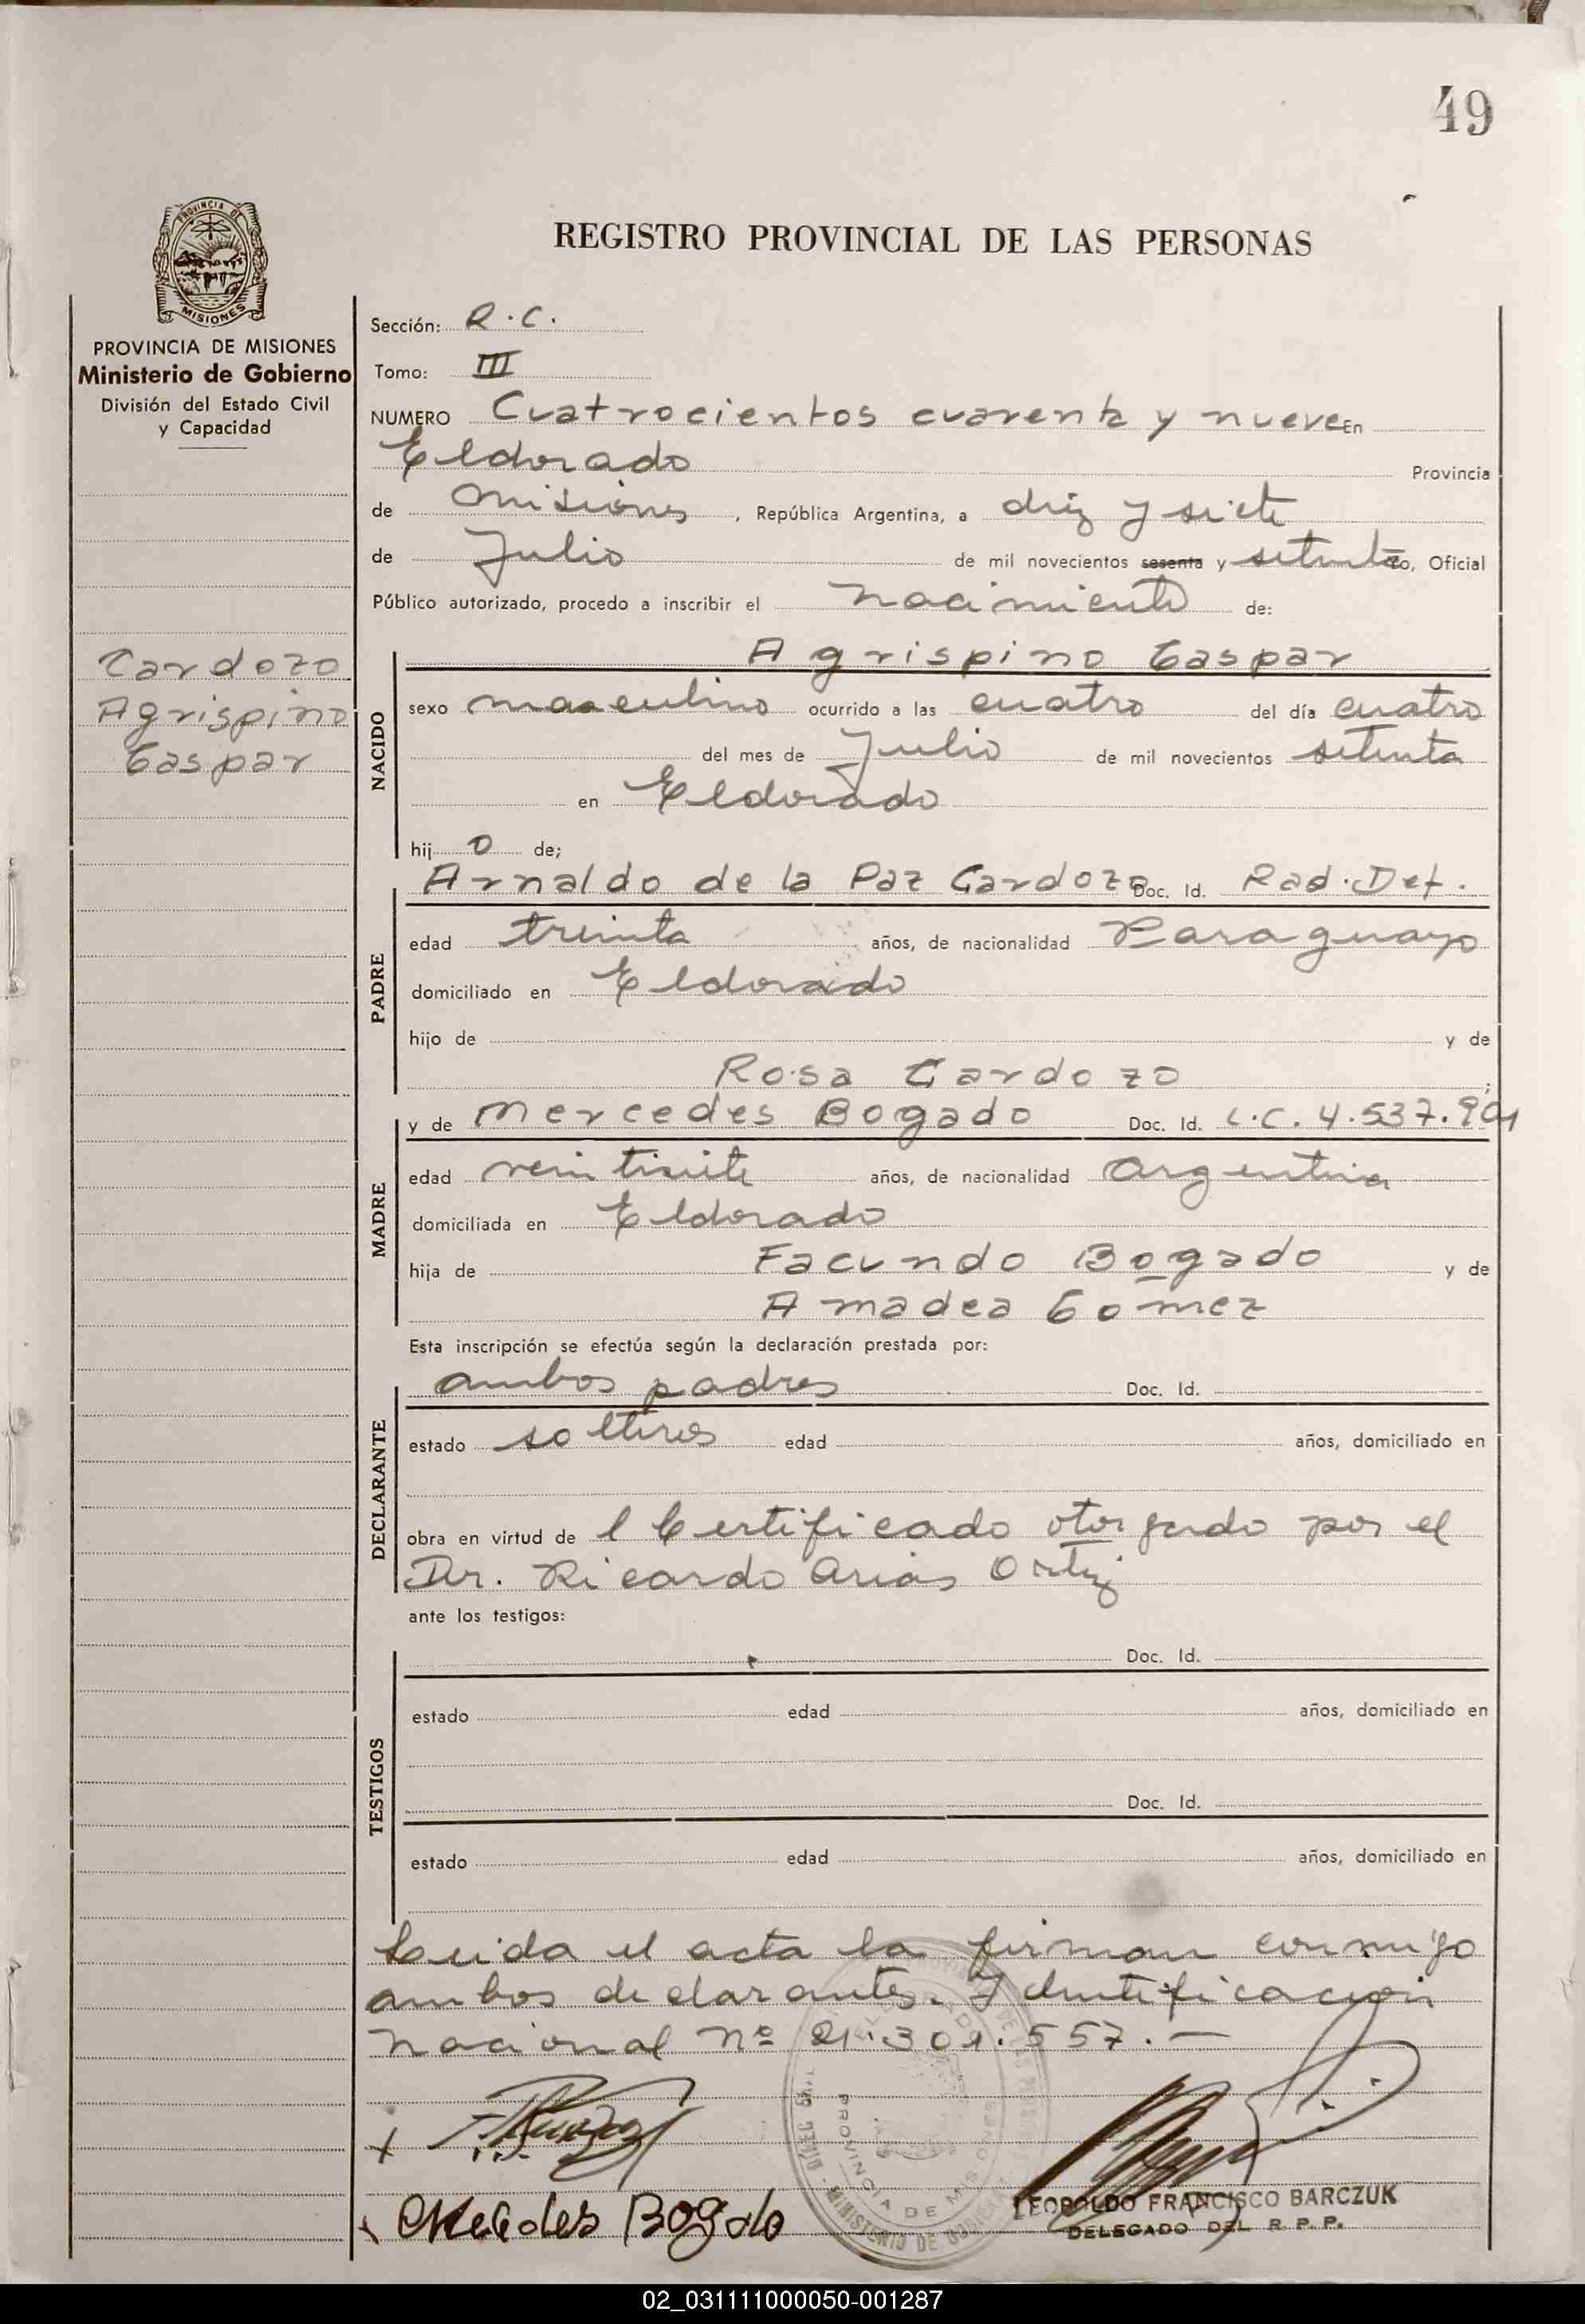 49
REGISTRO PROVINCIAL DE LAS PERSONAS
PROVINCIA DE
MISIONES
PROVINCIA DE MISIONES
Ministerio de Gobierno
División del Estado Civil
y Capacidad
Cardozo
Agrispino
Gaspar
Sección: R.C.
Tomo: III
NUMERO Cuatrocientos cuarenta y nueve En
Eldorado Provincia
de Misiones, República Argentina, a diez y siete
de Julio de mil novecientos sesenta y setenta yo, Oficial
Público autorizado, procedo a inscribir el nacimiento de:
NACIDO
Agrispino Gaspar
sexo masculino ocurrido a las cuatro del día cuatro
del mes de Julio de mil novecientos setenta
en Eldorado
hij o de;
PADRE
Arnaldo de la Paz Cardozo Doc. Id. Rad. Def.
edad treinta años, de nacionalidad Paraguayo
domiciliado en Eldorado
hijo de y de
Rosa Cardozo ;
MADRE
y de Mercedes Bogado Doc. Id. L.C. 4.537.901
edad veintisiete años, de nacionalidad Argentina
domiciliada en Eldorado
hija de Facundo Bogado y de
Amadea Gomez
Esta inscripción se efectúa según la declaración prestada por:
DECLARANTE
ambos padres Doc. Id.
estado solteros edad años, domiciliado en
obra en virtud de l Certificado otorgado por el
Dr. Ricardo Arias Ortiz
ante los testigos:
TESTIGOS
Doc. Id.
estado edad años, domiciliado en
Doc. Id.
estado edad años, domiciliado en
Leida el acta la firman conmigo
ambos declarantes. Identificacion
nacional nº 21.301.557.—
PROVINCIA DE MISIONES
MINISTERIO DE GOBIERNO
x
x Mercedes Bogado
LEOPOLDO FRANCISCO BARCZUK
DELEGADO DEL R. P. P.
02_031111000050-001287